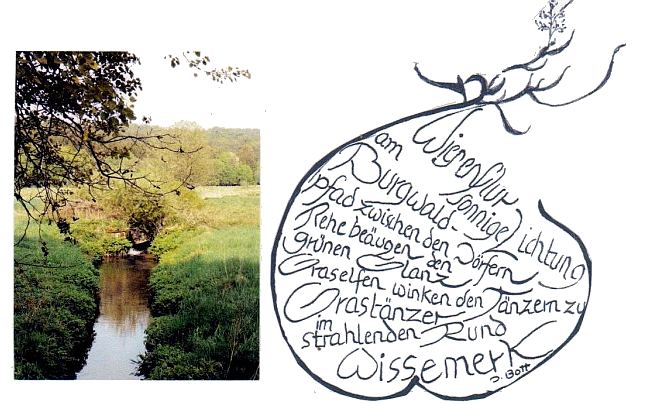 Wiesenflur
am
Burgwald - sonnige Lichtung
pfad zwischen den Dörfern
Rehe beäugen den
grünen Glanz,
Graselfen winken den Tänzern zu
Grastänzer
im
strahlenden Rund
Wissemerk
D. Bott